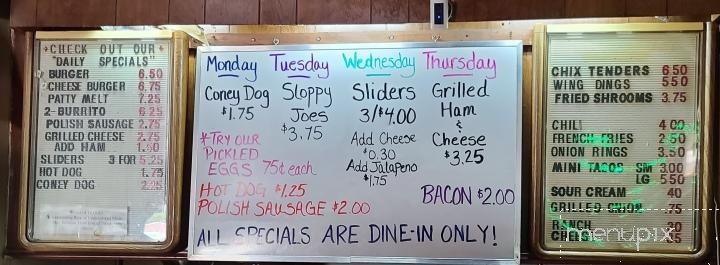 CHECK OUT OUR
"DAILY SPECIALS"
BURGER 6.50
CHEESE BURGER 6.75
PATTY MELT 7.25
2-BURRITO 6.25
POLISH SAUSAGE 2.75
GRILLED CHEESE 2.75
ADD HAM 1.50
SLIDERS 3 FOR 5.25
HOT DOG 1.75
CONEY DOG 2.25
Monday Tuesday Wednesday Thursday
Coney Dog
$1.75
Sloppy
Joes
$3.75
Sliders
3/$4.00
Add Cheese
$0.30
Add Jalapeño
$1.75
Grilled
Ham
&
Cheese
$3.25
*TRY OUR
PICKLED
EGGS 75¢ each
HOT DOG $1.25
POLISH SAUSAGE $2.00
BACON $2.00
ALL SPECIALS ARE DINE-IN ONLY!
CHIX TENDERS 6.50
WING DINGS 5.50
FRIED SHROOMS 3.75
CHILI 4.00
FRENCH-FRIES 2.50
ONION RINGS 3.50
MINI TACOS SM 3.00
LG 5.50
SOUR CREAM .40
GRILLED ONION .75
RANCH
CHEESE
menupix